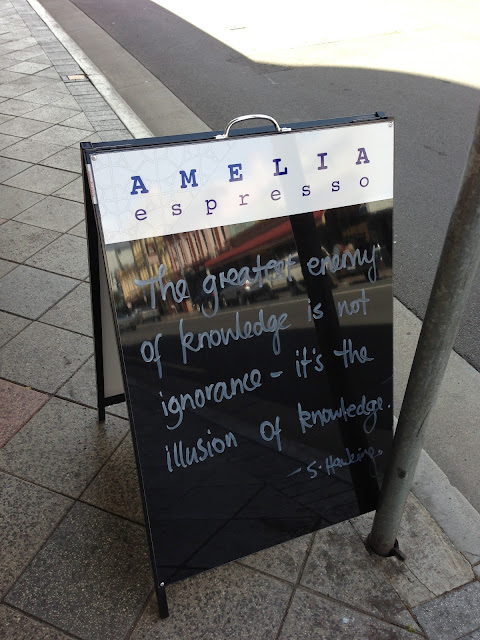 AMELIA
espresso
The greatest enemy
of knowledge is not
ignorance - it's the
illusion of knowledge.
- S. Hawking.